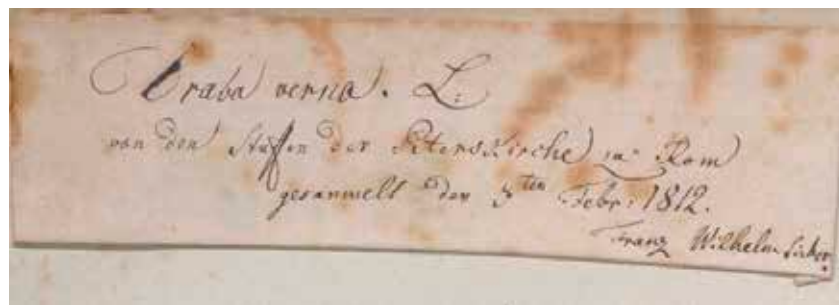 Draba verna. L:
von den Stuffen der Peterskirche in Rom
gesammelt den 3ten Febr: 1812.
Franz Wilhelm Sieber.